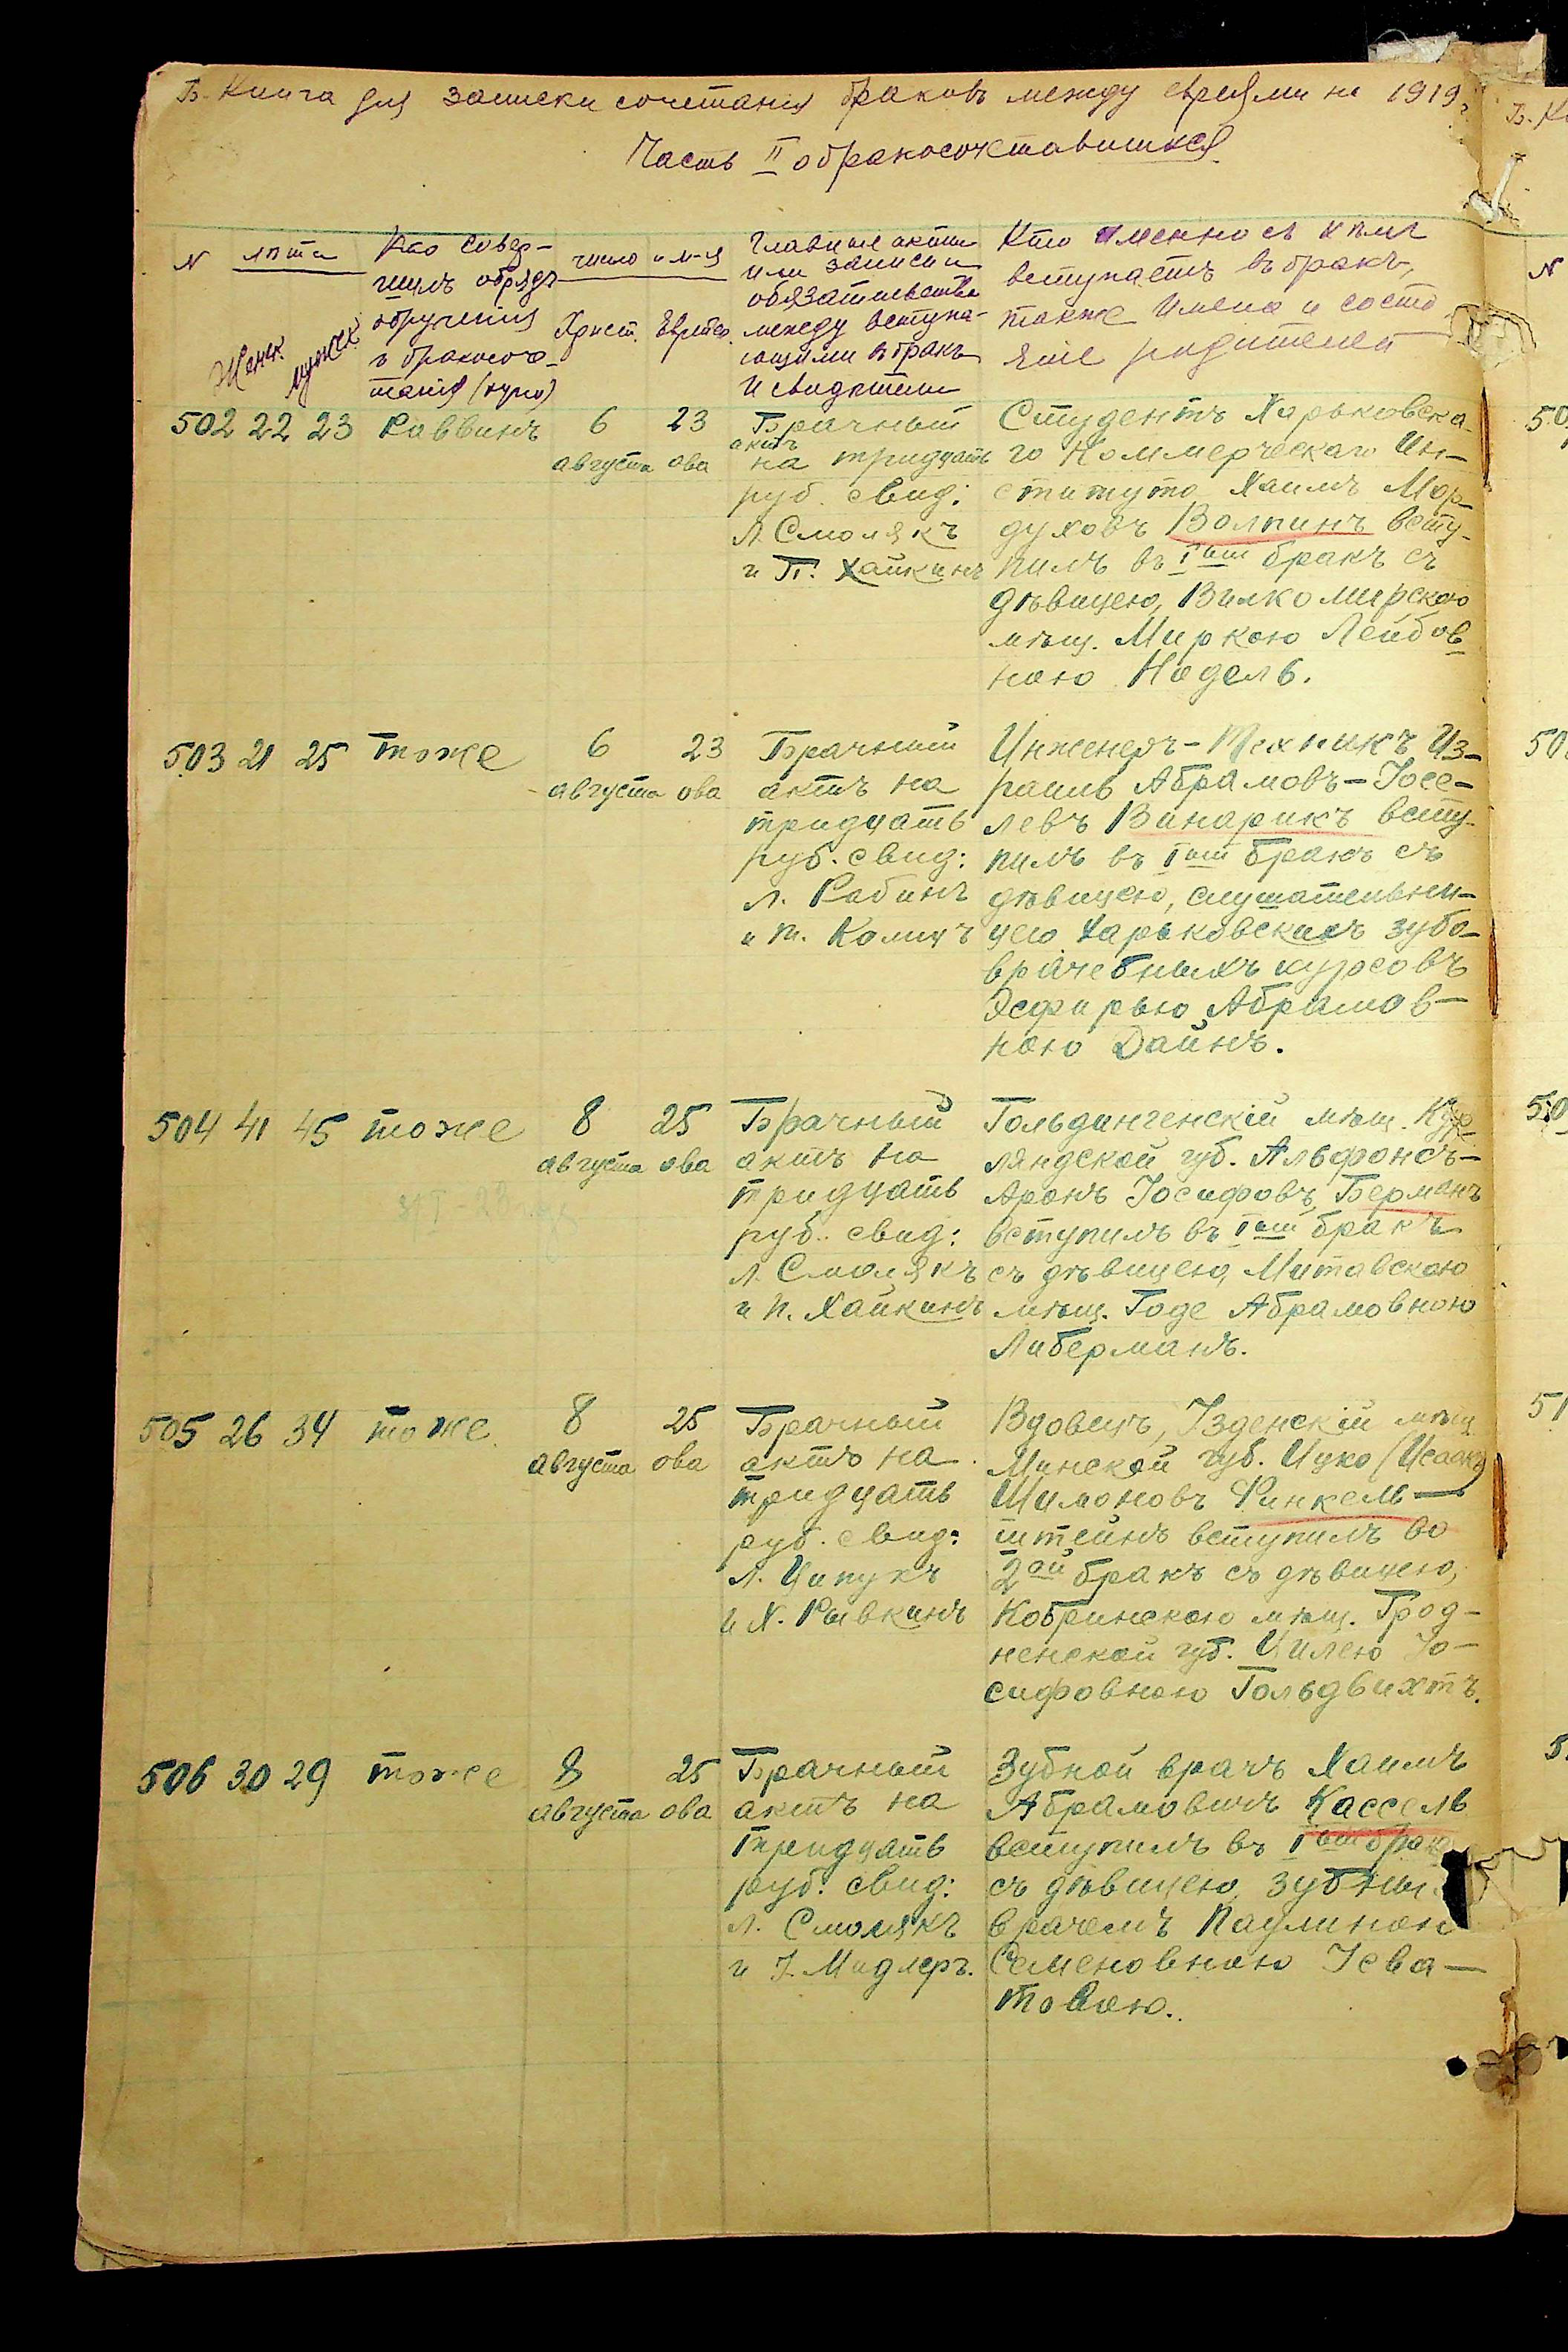 Б. Книга для записки сочетания браковъ между евреями на 1919 г.
Часть II о бракосочетавшихся.
N лѣта
Женск. мужск.
Кто совер-
шилъ обрядъ
обручения
и бракосоче-
тания (хупо)
число и м-ц
Христ. Еврейск.
Главные акты
или записи и
обязательства
между вступа-
ющими въ бракъ
и свидѣтели
Кто именно съ кѣмъ
вступаетъ въ бракъ,
также имена и состо-
яние родителей
502 22 23 Раввинъ 6 августа 23 ова
Брачный
актъ
на тридцать
руб. свид:
Л. Смолякъ
и П. Хайкинъ
Студентъ Харьковска-
го Коммерческаго Ин-
ститута Хаимъ Мор-
духовъ Волпинъ всту-
пилъ въ Iый бракъ съ
дѣвицею, Вилкомирскою
мѣщ. Миркою Лейбов
ною Надель.
503 21 25 тоже 6 августа 23 ова
Брачный
актъ на
тридцать
руб. свид:
Л. Рабинъ
и М. Колицъ
Инженеръ-Техникъ Из-
раиль Абрамовъ-Іосе-
левъ Винарикъ всту-
пилъ въ Iый бракъ съ
дѣвицею, слушательни-
цею Харьковскихъ зубо-
врачебныхъ курсовъ
Эсфирью Абрамов-
ною Дайнъ.
504 41 45 тоже 8 августа 25 ова
Брачный
актъ на
тридцать
руб. свид:
Л. Смолякъ
и П. Хайкинъ
Гольдингенскій мѣщ. Кур-
ляндской губ. Альфонсъ-
Аронъ Іосифовъ Берманъ
вступилъ въ Iый бракъ
съ дѣвицею, Митавскою
мѣщ. Годе Абрамовною
Либерманъ.
505 26 34 тоже 8 августа 25 ова
Брачный
актъ на
тридцать
руб. свид:
Л. Ципукъ
и Х. Рывкинъ
Вдовецъ, Узденскій мѣщ.
Минской губ. Ицко (Исаакъ)
Шимоновъ Финкель-
штейнъ вступилъ во
2ой бракъ съ дѣвицею,
Кобринскою мѣщ. Грод-
ненской губ. Цилею Іо-
сифовною Гольдвихтъ.
506 30 29 тоже 8 августа 25 ова
Брачный
актъ на
тридцать
руб. свид:
Л. Смолякъ
и І. Мидлеръ.
Зубной врачъ Хаимъ
Абрамовичъ Кассель
вступилъ въ Iый бракъ
съ дѣвицею, зубным
врачемъ Паулиною
Семеновною Іева-
товою.